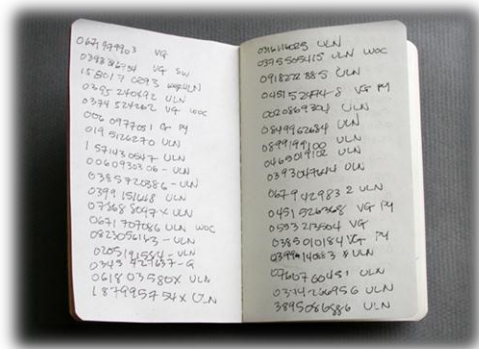 0671979903 VG
0394316734 VG SW
158017 0293 ULN
0385240892 ULN
0374524262 VG WOC
006 0977051 G PY
0195126270 ULN
1571430547 ULN
0060930306 - ULN
0385720386 - ULN
0399 151648 ULN
073688097X ULN
0671707086 ULN WOC
0823056143 - ULN
0205191584 - ULN
0345 727637 - G
061803580X ULN
187995754X ULN
0316116025 ULN
0375505415 ULN WOC
0918222885 ULN
0451524748 VG PY
0020869304 ULN
0849962684 ULN
0899199100 ULN
0465019102 ULN
0393047644 ULN
0679429832 ULN
0451526368 VG PY
0553213504 VG
0385010184 VG PY
039914083 8 ULN
0760760451 ULN
0374266956 ULN
3895086886 ULN